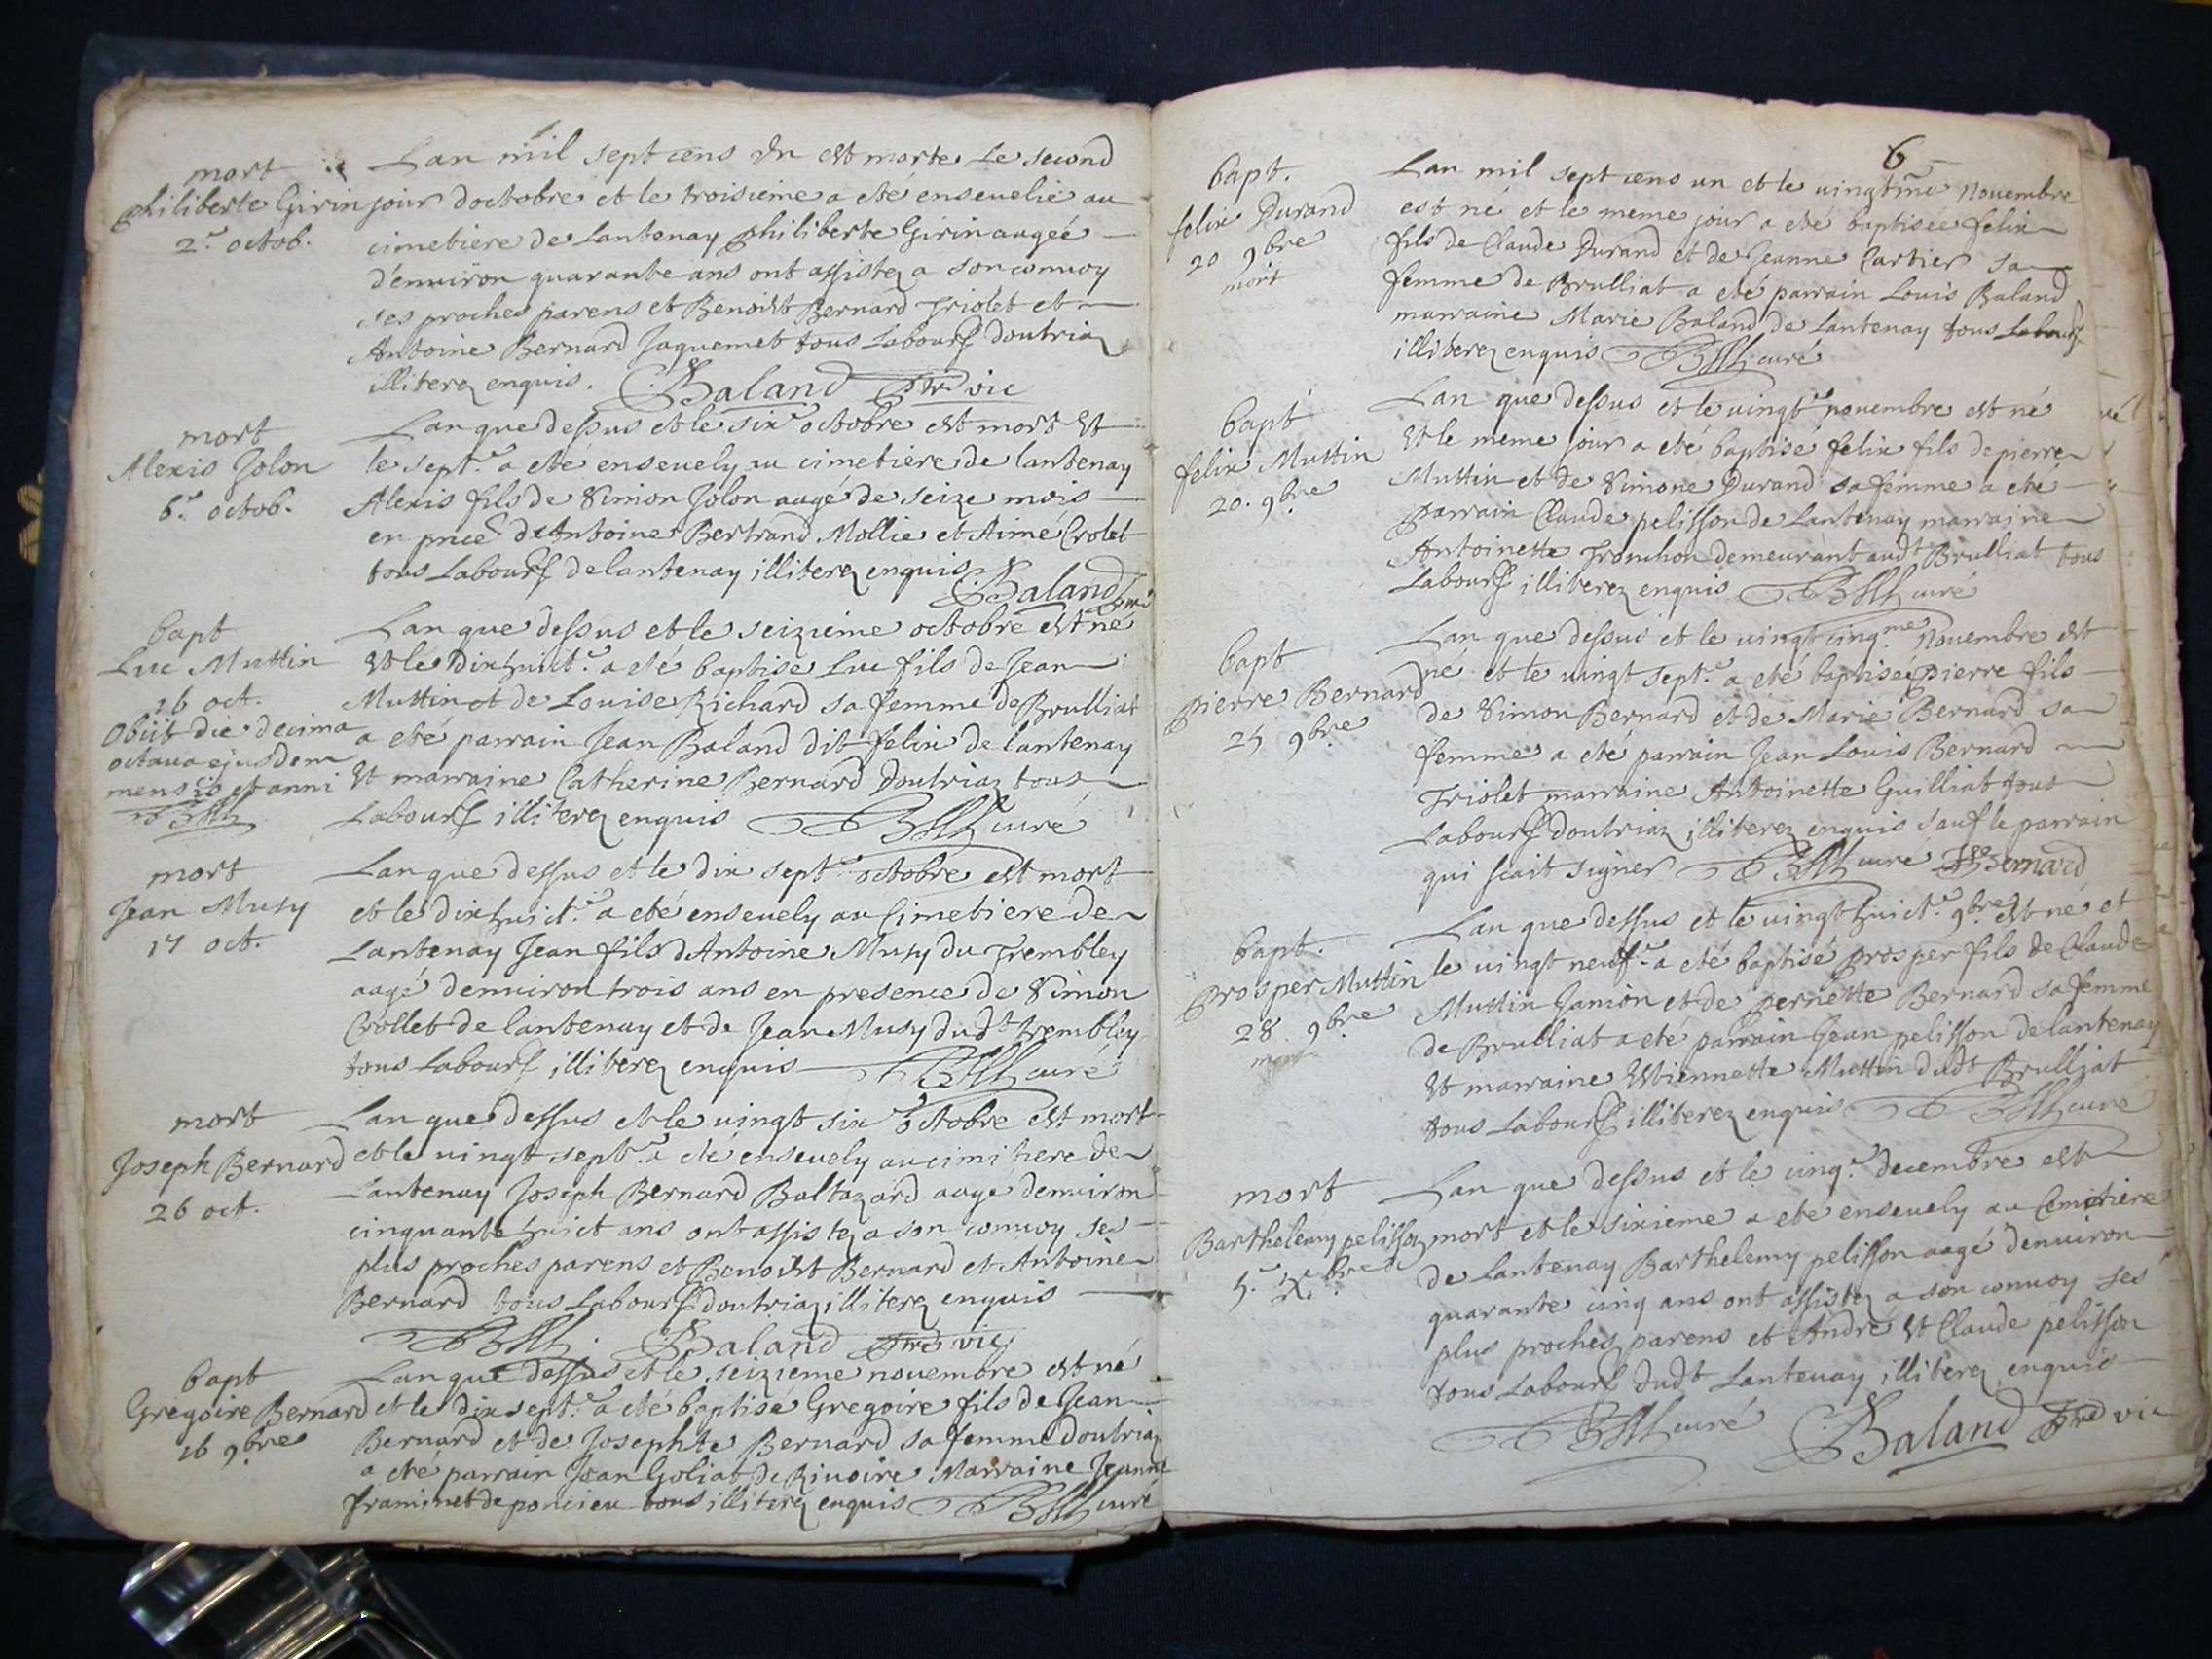 mort
philiberte Girin
2.e octob.
Lan mil sept cens un est morte le second
jour doctobre et le troisieme a eté ensevelie au
cimetiere de Lantenay philiberte Girin augeé
d'environ quarante ans ont assistez a son convoy
ses proches parens et Benoist Bernard Triolet et
Antoine Bernard Jaquemet tous Labours doutriaz
illiterez enquis. Baland ptre vic
mort
Alexis Jolon
6.e octob.
Lan que dessus et le six.e octobre est mort Et
le sept.e a eté ensevely au cimetiere de lantenay
Alexis fils de Simon Jolon aagé de seize mois
en pnce d'Antoine Bertrand Mollie et Aimé Crolet
tous Labours de lantenay illiterez enquis Baland
bapt
Luc Muttin
16 oct.
Obiit die decima
octava ejusdem
mensis et anni
Lan que dessus et le seizieme octobre est né
Et le dixhuict.e a eté baptisé Luc fils de Jean
Muttin et de Louise Richard sa femme de Brulliat
a eté parrain Jean Baland dit felix de lantenay
Et marraine Catherine Bernard Doutriaz tous
Labours illiterez enquis curé
mort
Jean Musy
17 oct.
Lan que dessus et le dix sept.e octobre est mort
et le dixhuict.e a eté ensevely au Cimetiere de
Lantenay Jean fils d'Antoine Musy du Trembley
aagé denviron trois ans en presence de Simon
Crollet de lantenay et de Jean Musy dudt trembley
tous Labours illiterez enquis curé
mort
Joseph Bernard
26 oct.
Lan que dessus et le vingt six.e octobre est mort
et le vingt sept.e a eté ensevely au cimitiere de
Lantenay Joseph Bernard Baltazard aage denviron
cinquante huict ans ont assistez a son convoy ses
plus proches parens et Benoist Bernard et Antoine
Bernard tous Labours doutriaz illiterez enquis
Baland ptre vic
bapt
Gregoire Bernard
16 9.bre
Lan que dessus et le seizieme novembre est né
et le dixsept.e a eté baptisé Gregoire fils de Jean
Bernard et de Josephte Bernard sa femme doutriaz
a eté parrain Jean Goliat de Rivoire Marraine Jeanne
framinet de poncieu tous illiterez enquis curé
6
bapt.
felix Durand
20 9bre
mort
Lan mil sept cens un et le vingtme Novembre
est né et le meme jour a eté baptisée felix
fils de Claude Durand et de Jeanne Cartier sa
femme de Brulliat a eté parrain Louis Baland
marraine Marie Baland de Lantenay tous Labours
illiterez enquis curé
bapt
felix Muttin
20. 9.bre
Lan que dessus et le vingt.e novembre est né
Et le meme jour a eté baptisé felix fils de pierre
Muttin et de Simone Durand sa femme a eté
parrain Claude pelisson de Lantenay marraine
Antoinette Tronchon demeurant audt Brulliat tous
Labours illiterez enquis curé
bapt
pierre Bernard
25 9bre
Lan que dessus et le vingt cinq.me Novembre est
né et le vingt sept.e a eté baptisé pierre fils
de Simon Bernard et de Marie Bernard sa
femme a eté parrain Jean Louis Bernard
Triolet marraine Antoinette Guilliat tous
Labours doutriaz illiterez enquis sauf le parrain
qui scait signer curé Bernard
bapt.
prosper Muttin
28 9bre
mort
Lan que dessus et le vingt huict.e 9.bre est né et
le vingt neuf.e a eté baptisé prosper fils de Claude
Muttin Janion et de pernette Bernard sa femme
de Brulliat a eté parrain Jean pelisson de lantenay
Et marraine Estiennette Muttin dudt Brulliat
tous Labours illiterez enquis curé
mort
Barthelemy pelisson
5.e X.bre
Lan que dessus et le cinq.e decembre est
mort et le sixieme a eté ensevely au Cemitiere
de Lantenay Barthelemy pelisson aagé denviron
quarante cinq ans ont assistez a son convoy ses
plus proches parens et André Et Claude pelisson
tous Labours dudt Lantenay illiterez enquis
curé Baland ptre vic